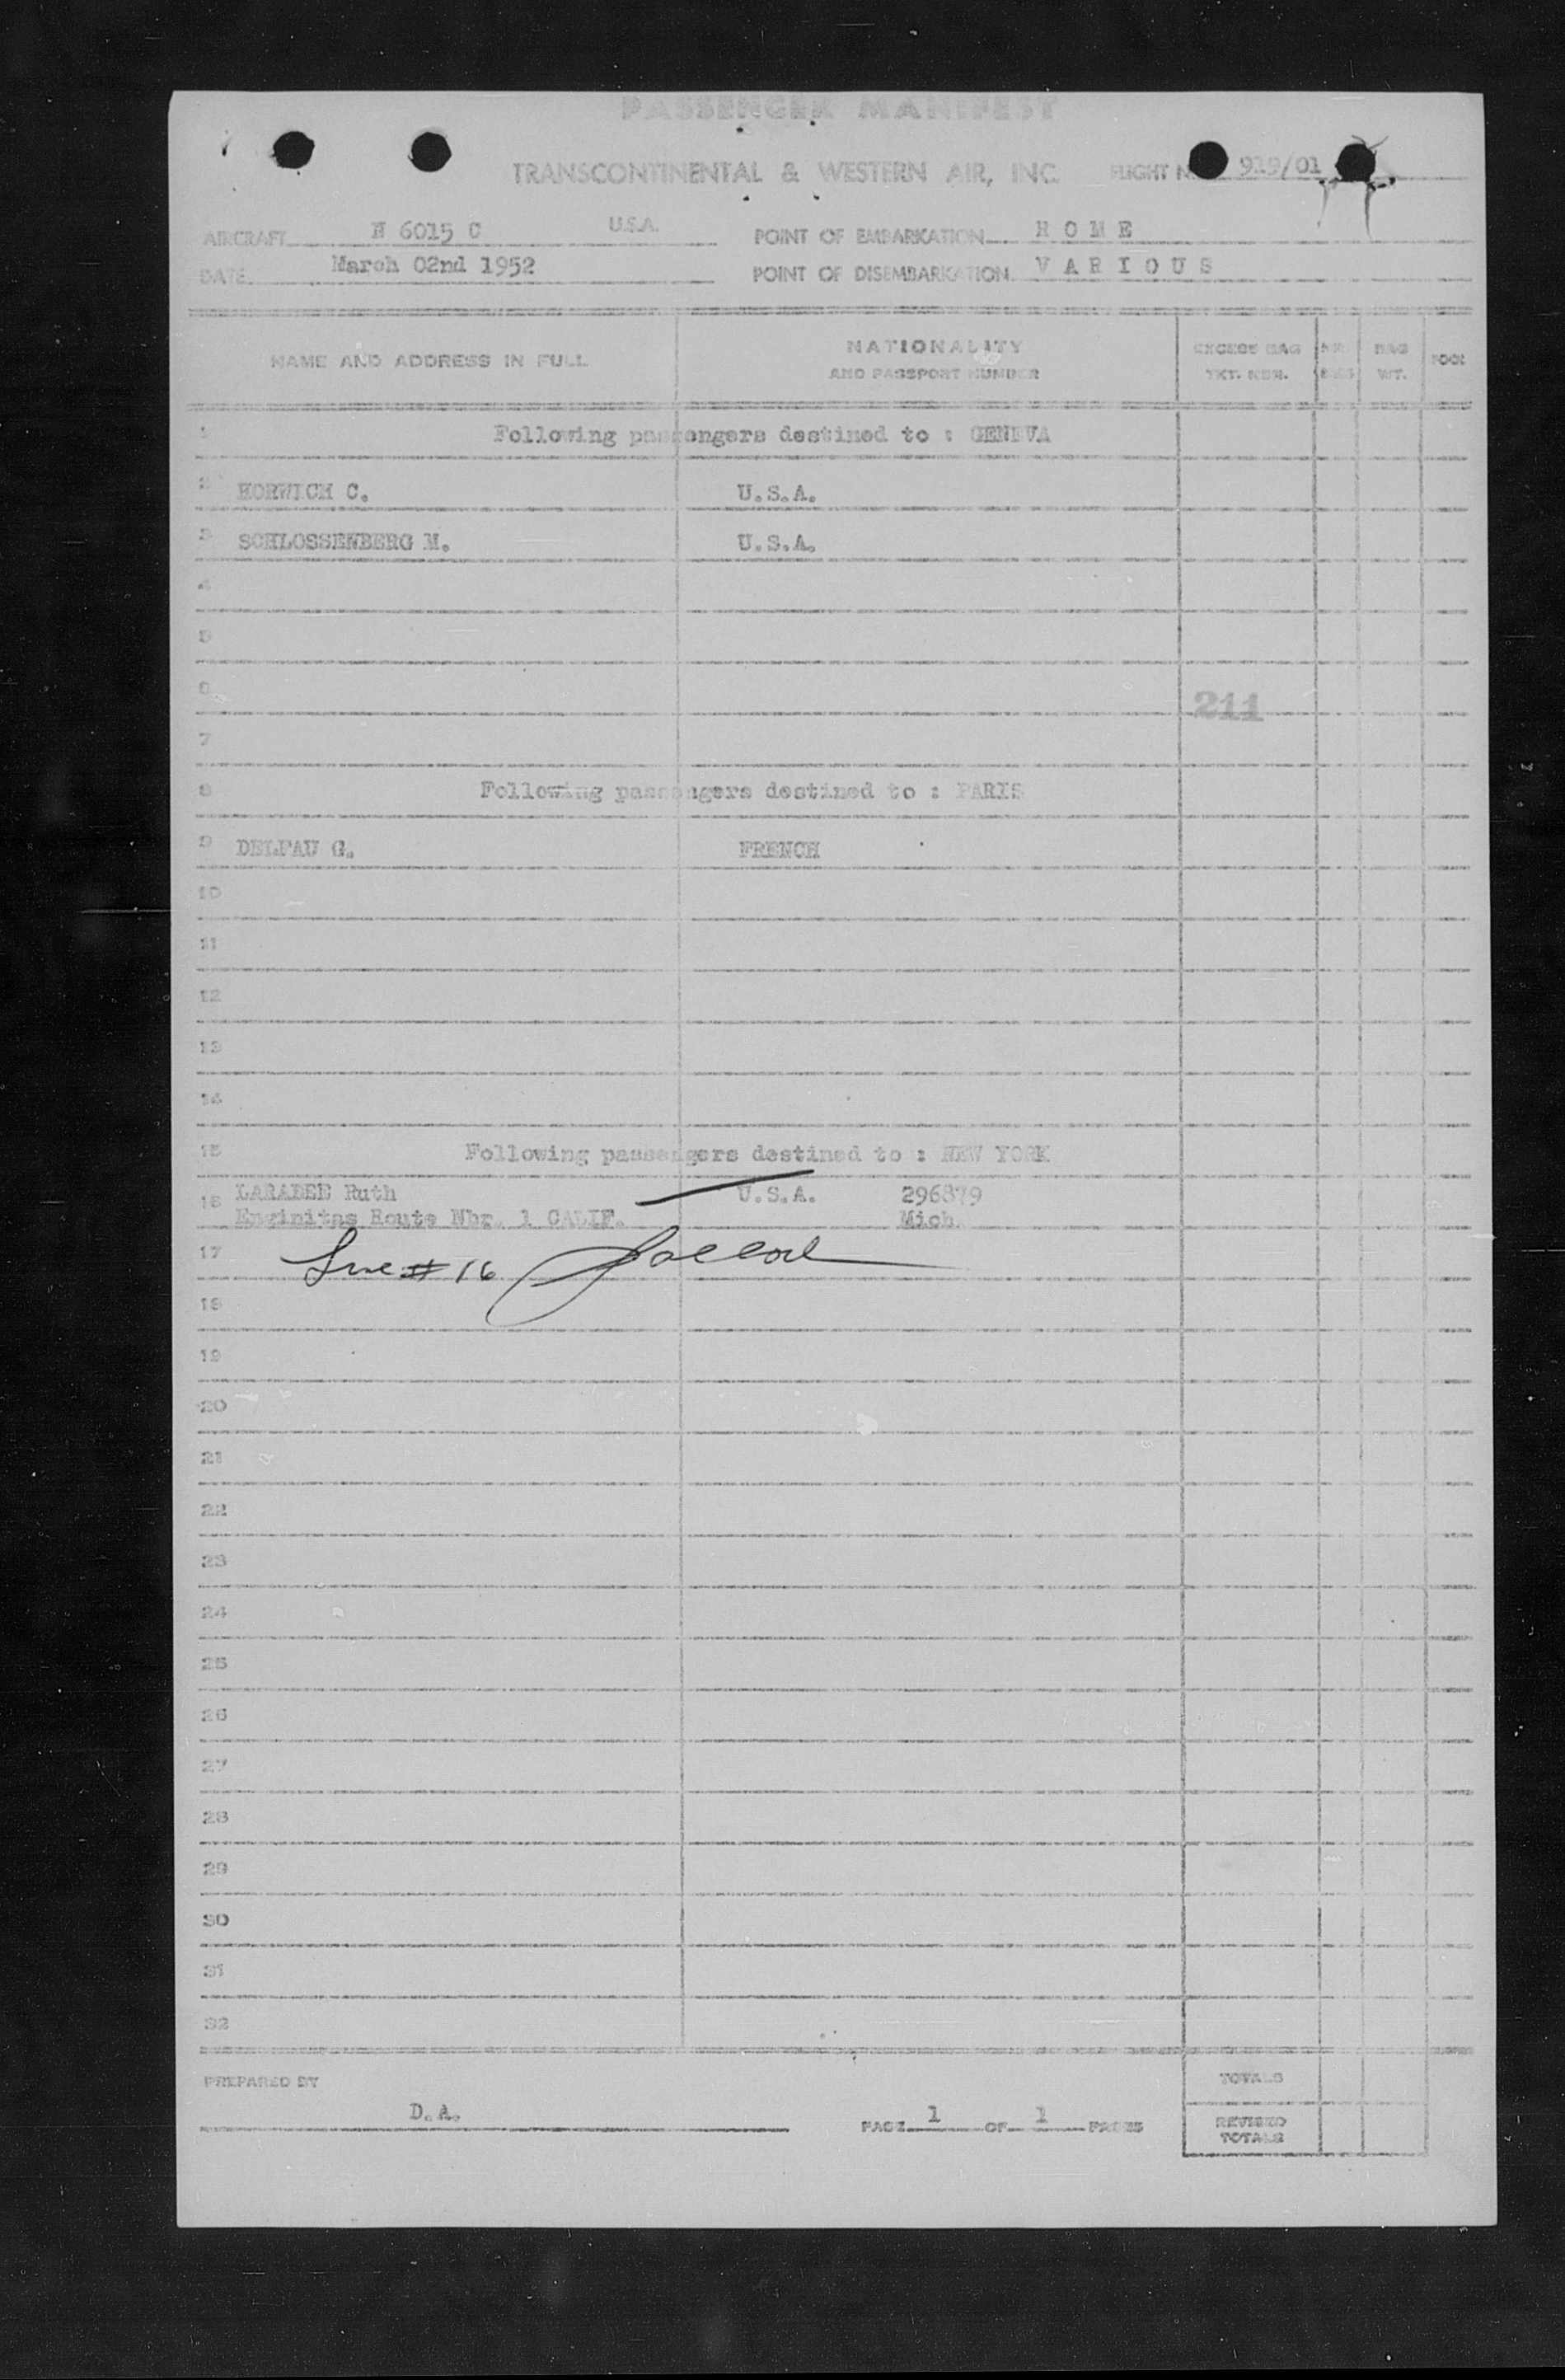 PASSENGER MANIFEST
TRANSCONTINENTAL & WESTERN AIR, INC. FLIGHT N 919/01
AIRCRAFT N 6015 C U.S.A. POINT OF EMBARKATION R O M E
DATE March 02nd 1952 POINT OF DISEMBARKATION V A R I O U S
NAME AND ADDRESS IN FULL
NATIONALITY
AND PASSPORT NUMBER
EXCESS BAG
TKT. NBR.
BAG
WT.
1 Following passengers destined to : GENEVA
2 HORWICH C. U.S.A.
3 SCHLOSSENBERG M. U.S.A.
4
5
6 211
7
8 Following passengers destined to : PARIS
9 DELPAU G. FRENCH
10
11
12
13
14
15 Following passengers destined to : NEW YORK
16 LARABEE Ruth U.S.A. 296879
Enginitas Route Nbr. 1 CALIF. Mich.
17 Line # 16
18
19
20
21
22
23
24
25
26
27
28
29
30
31
32
PREPARED BY
D.A.
PAGE 1 OF 1 PAGES
TOTALS
REVISED
TOTALS